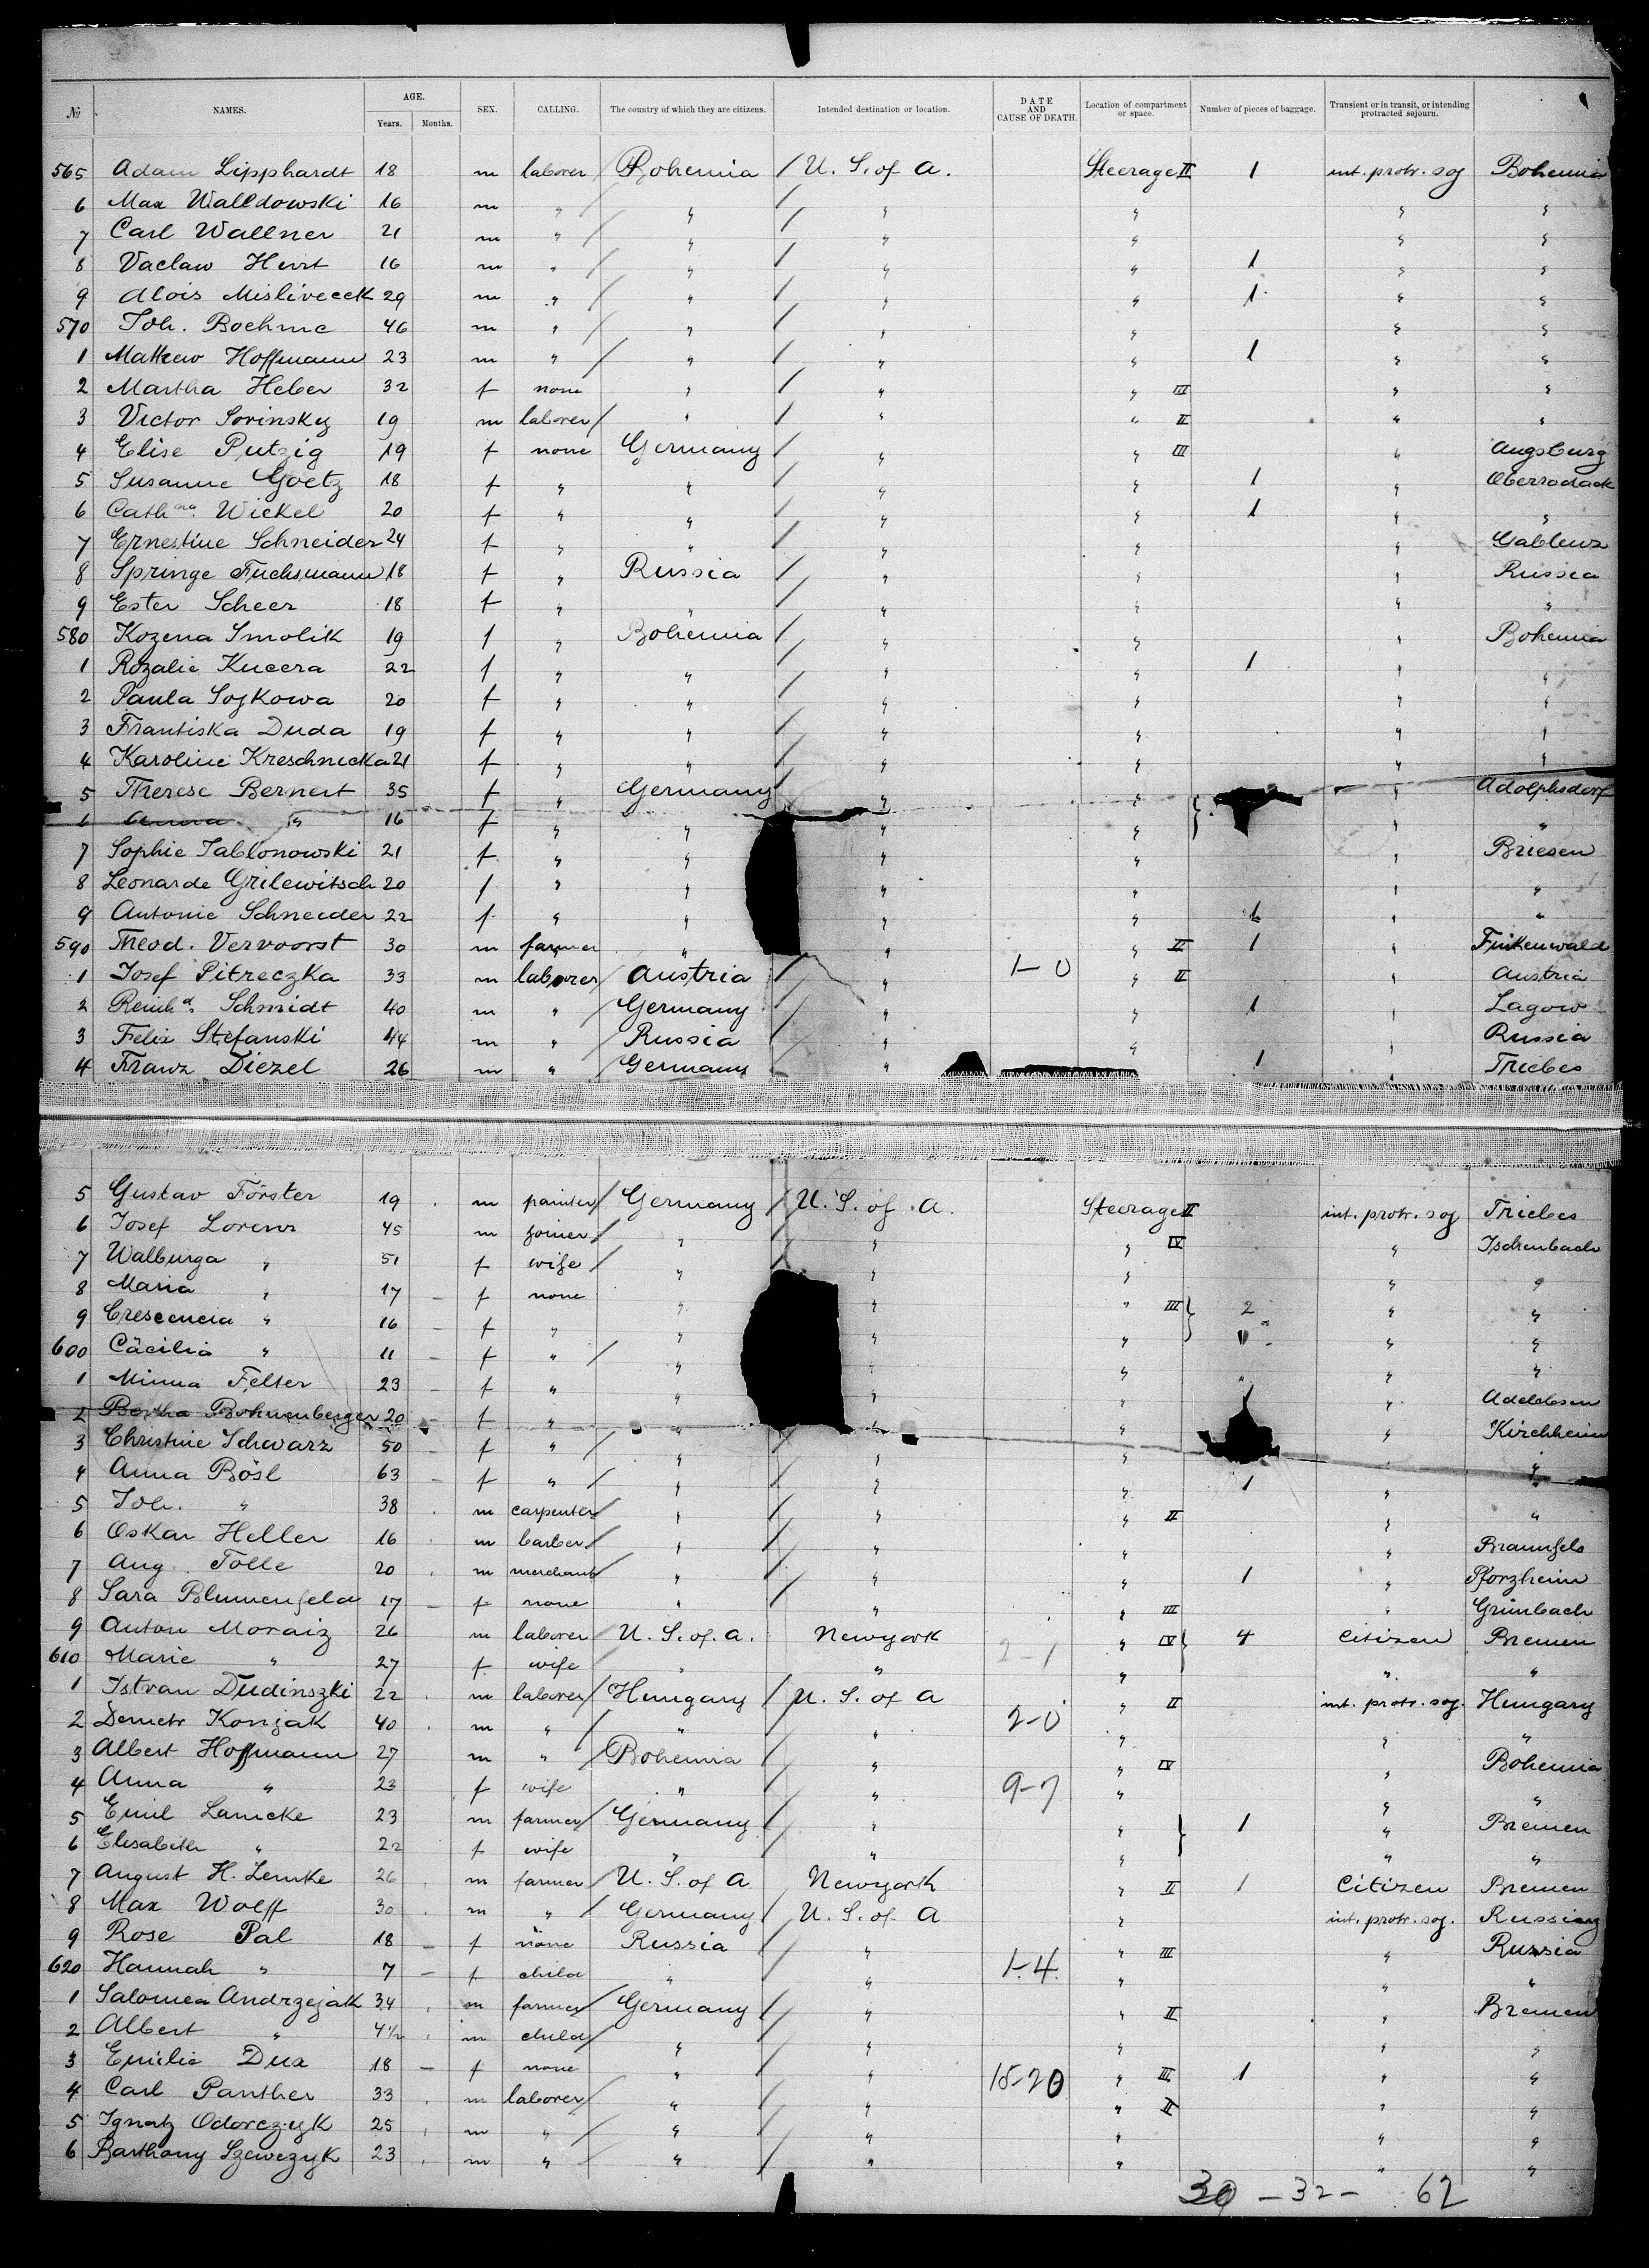 № NAMES. AGE. Years. Months. SEX. CALLING. The country of which they are citizens. Intended destination or location. DATE AND CAUSE OF DEATH. Location of compartment or space. Number of pieces of baggage. Transient or in transit, or intending protracted sojourn.
565 Adam Lipphardt 18 m laborer Bohemia / U. S. of A. Steerage II 1 int. protr. soj Bohemia
6 Max Walldowski 16 m " / " / " " " "
7 Carl Wallner 21 m " / " / " " " "
8 Vaclaw Hurt 16 m " / " / " " 1 " "
9 Alois Misliveeck 29 m " / " / " " 1 " "
570 Joh. Boehme 46 m " / " / " " " "
1 Mathew Hoffmann 23 m " / " / " " 1 " "
2 Martha Heber 32 f none " / " " III " "
3 Victor Sorinsky 19 m laborer / " / " " II " "
4 Elise Putzig 19 f none Germany / " " III " Augsburg
5 Susanne Goetz 18 f " " / " " 1 " Oberrodack
6 Cathna. Wickel 20 f " " / " " 1 " "
7 Ernestine Schneider 24 f " " / " " " Gablenz
8 Springe Fuchsmann 18 f " Russia / " " " Russia
9 Ester Scheer 18 f " " / " " " "
580 Kozena Smolik 19 f " Bohemia / " " " Bohemia
1 Rozalie Kucera 22 f " " / " " 1 " "
2 Paula Sojkowa 20 f " " / " " " "
3 Frantiska Duda 19 f " " / " " " "
4 Karoline Kreschnicka 21 f " " / " " " "
5 Therese Bernert 35 f " Germany / " " " Adolphsdorf
6 Anna " 16 f " " " " " "
7 Sophie Jablonowski 21 f " " " " " Briesen
8 Leonarde Grilewitsch 20 f " " " " " "
9 Antonie Schneider 22 f " " " " 1 " "
590 Theod. Vervoorst 30 m farmer " " " II 1 " Finkenwald
1 Josef Pitreczka 33 m laborer / Austria / " 1-0 " II " Austria
2 Reinhd. Schmidt 40 m " / Germany / " " 1 " Lagow
3 Felix Stefanski 44 m " / Russia / " " " Russia
4 Franz Diezel 26 m " / Germany " " 1 " Triebes
5 Gustav Förster 19 m painter / Germany / U. S. of A. Steerage II int. protr. soj Triebes
6 Josef Lorenz 45 m joiner / " / " " IV " Ischenbach
7 Walburga " 51 f wife / " / " " " "
8 Maria " 17 f none " " " III 2 " "
9 Crescencia " 16 f " " " " " "
600 Cäcilia " 11 f " / " " " " "
1 Minna Felter 23 f " " " " " Adelebsen
2 Bertha Bohnenberger 20 f " " " " " Kirchheim
3 Christine Schwarz 50 f " / " / " " " "
4 Anna Bösl 63 f " / " / " " 1 " "
5 Joh. " 38 m carpenter / " / " " II " "
6 Oskar Heller 16 m barber / " / " " " Braunfels
7 Aug. Tolle 20 m merchant / " / " " 1 " Pforzheim
8 Sara Blumenfeld 17 f none " / " " III " Grünbach
9 Anton Moraiz 26 m laborer U. S. of. A. Newyork 2-1 " IV 4 Citizen Bremen
610 Marie " 27 f wife " " " " "
1 Istvan Dudinszki 22 m laborer / Hungary / U. S. of A " II int. protr. soj. Hungary
2 Demetr Konjak 40 m " / " / " 2-0 " " "
3 Albert Hoffmann 27 m " / Bohemia / " " IV " Bohemia
4 Anna " 23 f wife " / " 9-7 " " "
5 Emil Lamcke 23 m farmer / Germany / " " 1 " Bremen
6 Elisabeth " 22 f wife " / " " " "
7 August H. Lemke 26 m farmer U. S. of A. Newyork " II 1 Citizen Bremen
8 Max Wolff 30 m " Germany / U. S. of A " int. protr. soj.
9 Rose Pal 18 f none Russia / " " III " Russia
620 Hannah " 7 f child " / " 1-4 " " "
1 Salomea Andrzejak 34 m farmer / Germany / " " II " Bremen
2 Albert " 4½ m child / " / " " " "
3 Emilie Dux 18 f none " / " 18-20 " III 1 " "
4 Carl Panther 33 m laborer / " / " " II " "
5 Ignatz Odorczyk 25 m " / " / " " " "
6 Barthony Szewczyk 23 m " / " / " " " "
30 - 32 - 62